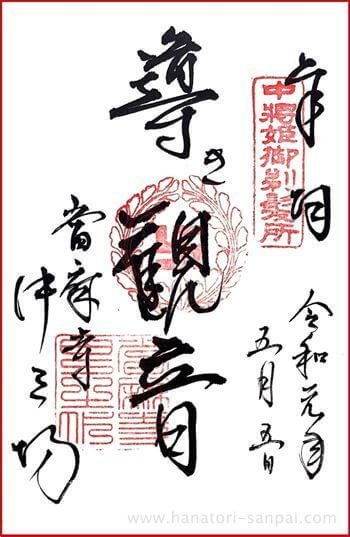 奉拝
中将姫御剃髪所
令和元年
五月五日
導き観音
當麻寺
中之坊
www.hanatori-sanpai.com